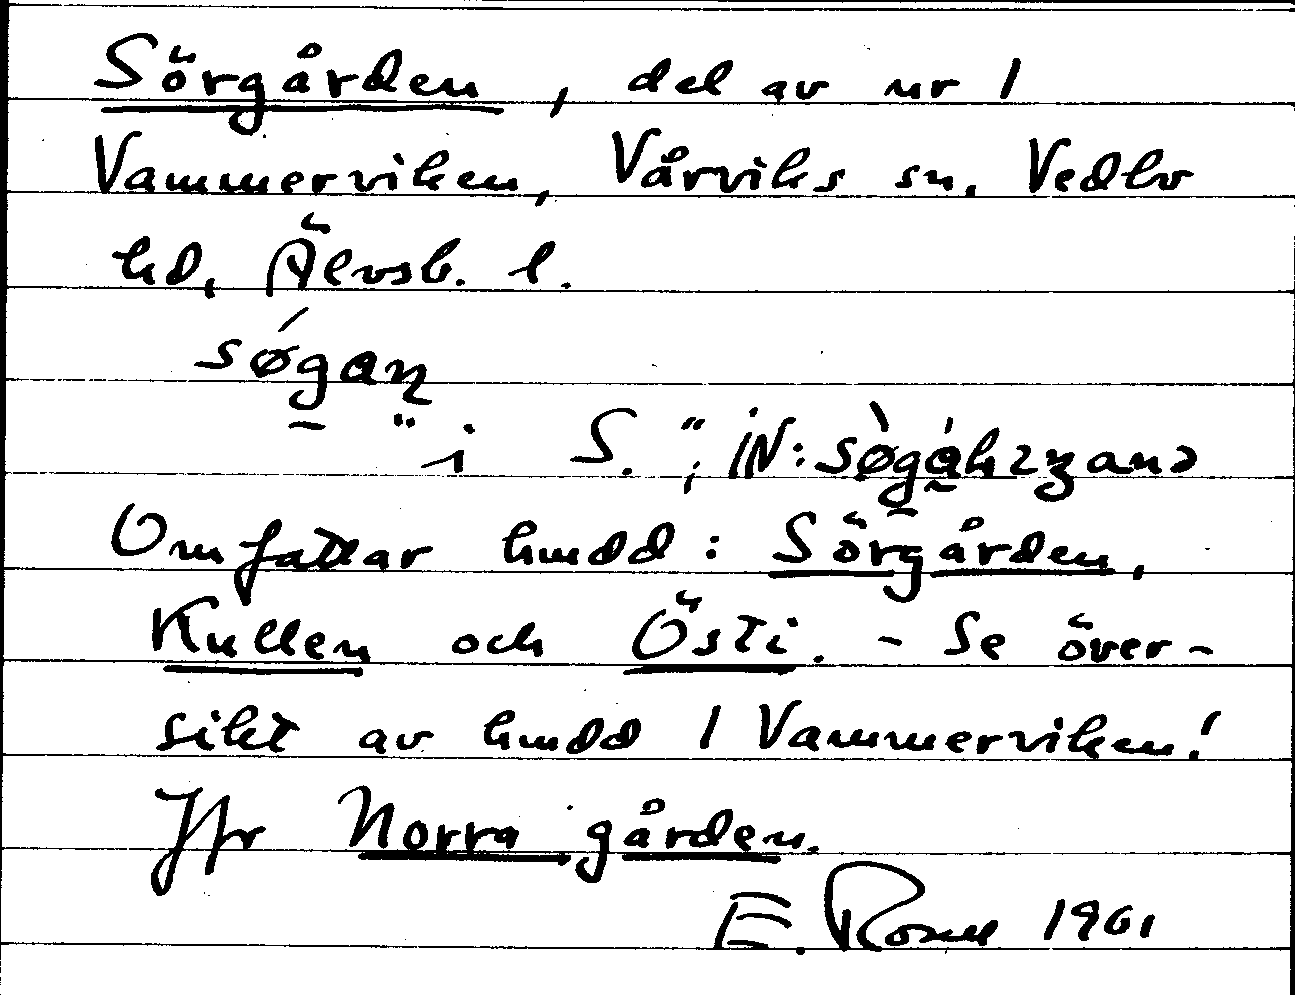 Sörgården, del av nr 1
Vammerviken, Vårviks sn. Vedbo
hd, Älvsb. l.
søgaɳ
"i S.", iN:
Omfattar hmdd: Sörgården,
Kullen och Östi. - Se över-
sikt av hmdd 1 Vammerviken!
Jfr Norra gården.
E. Rosell 1901